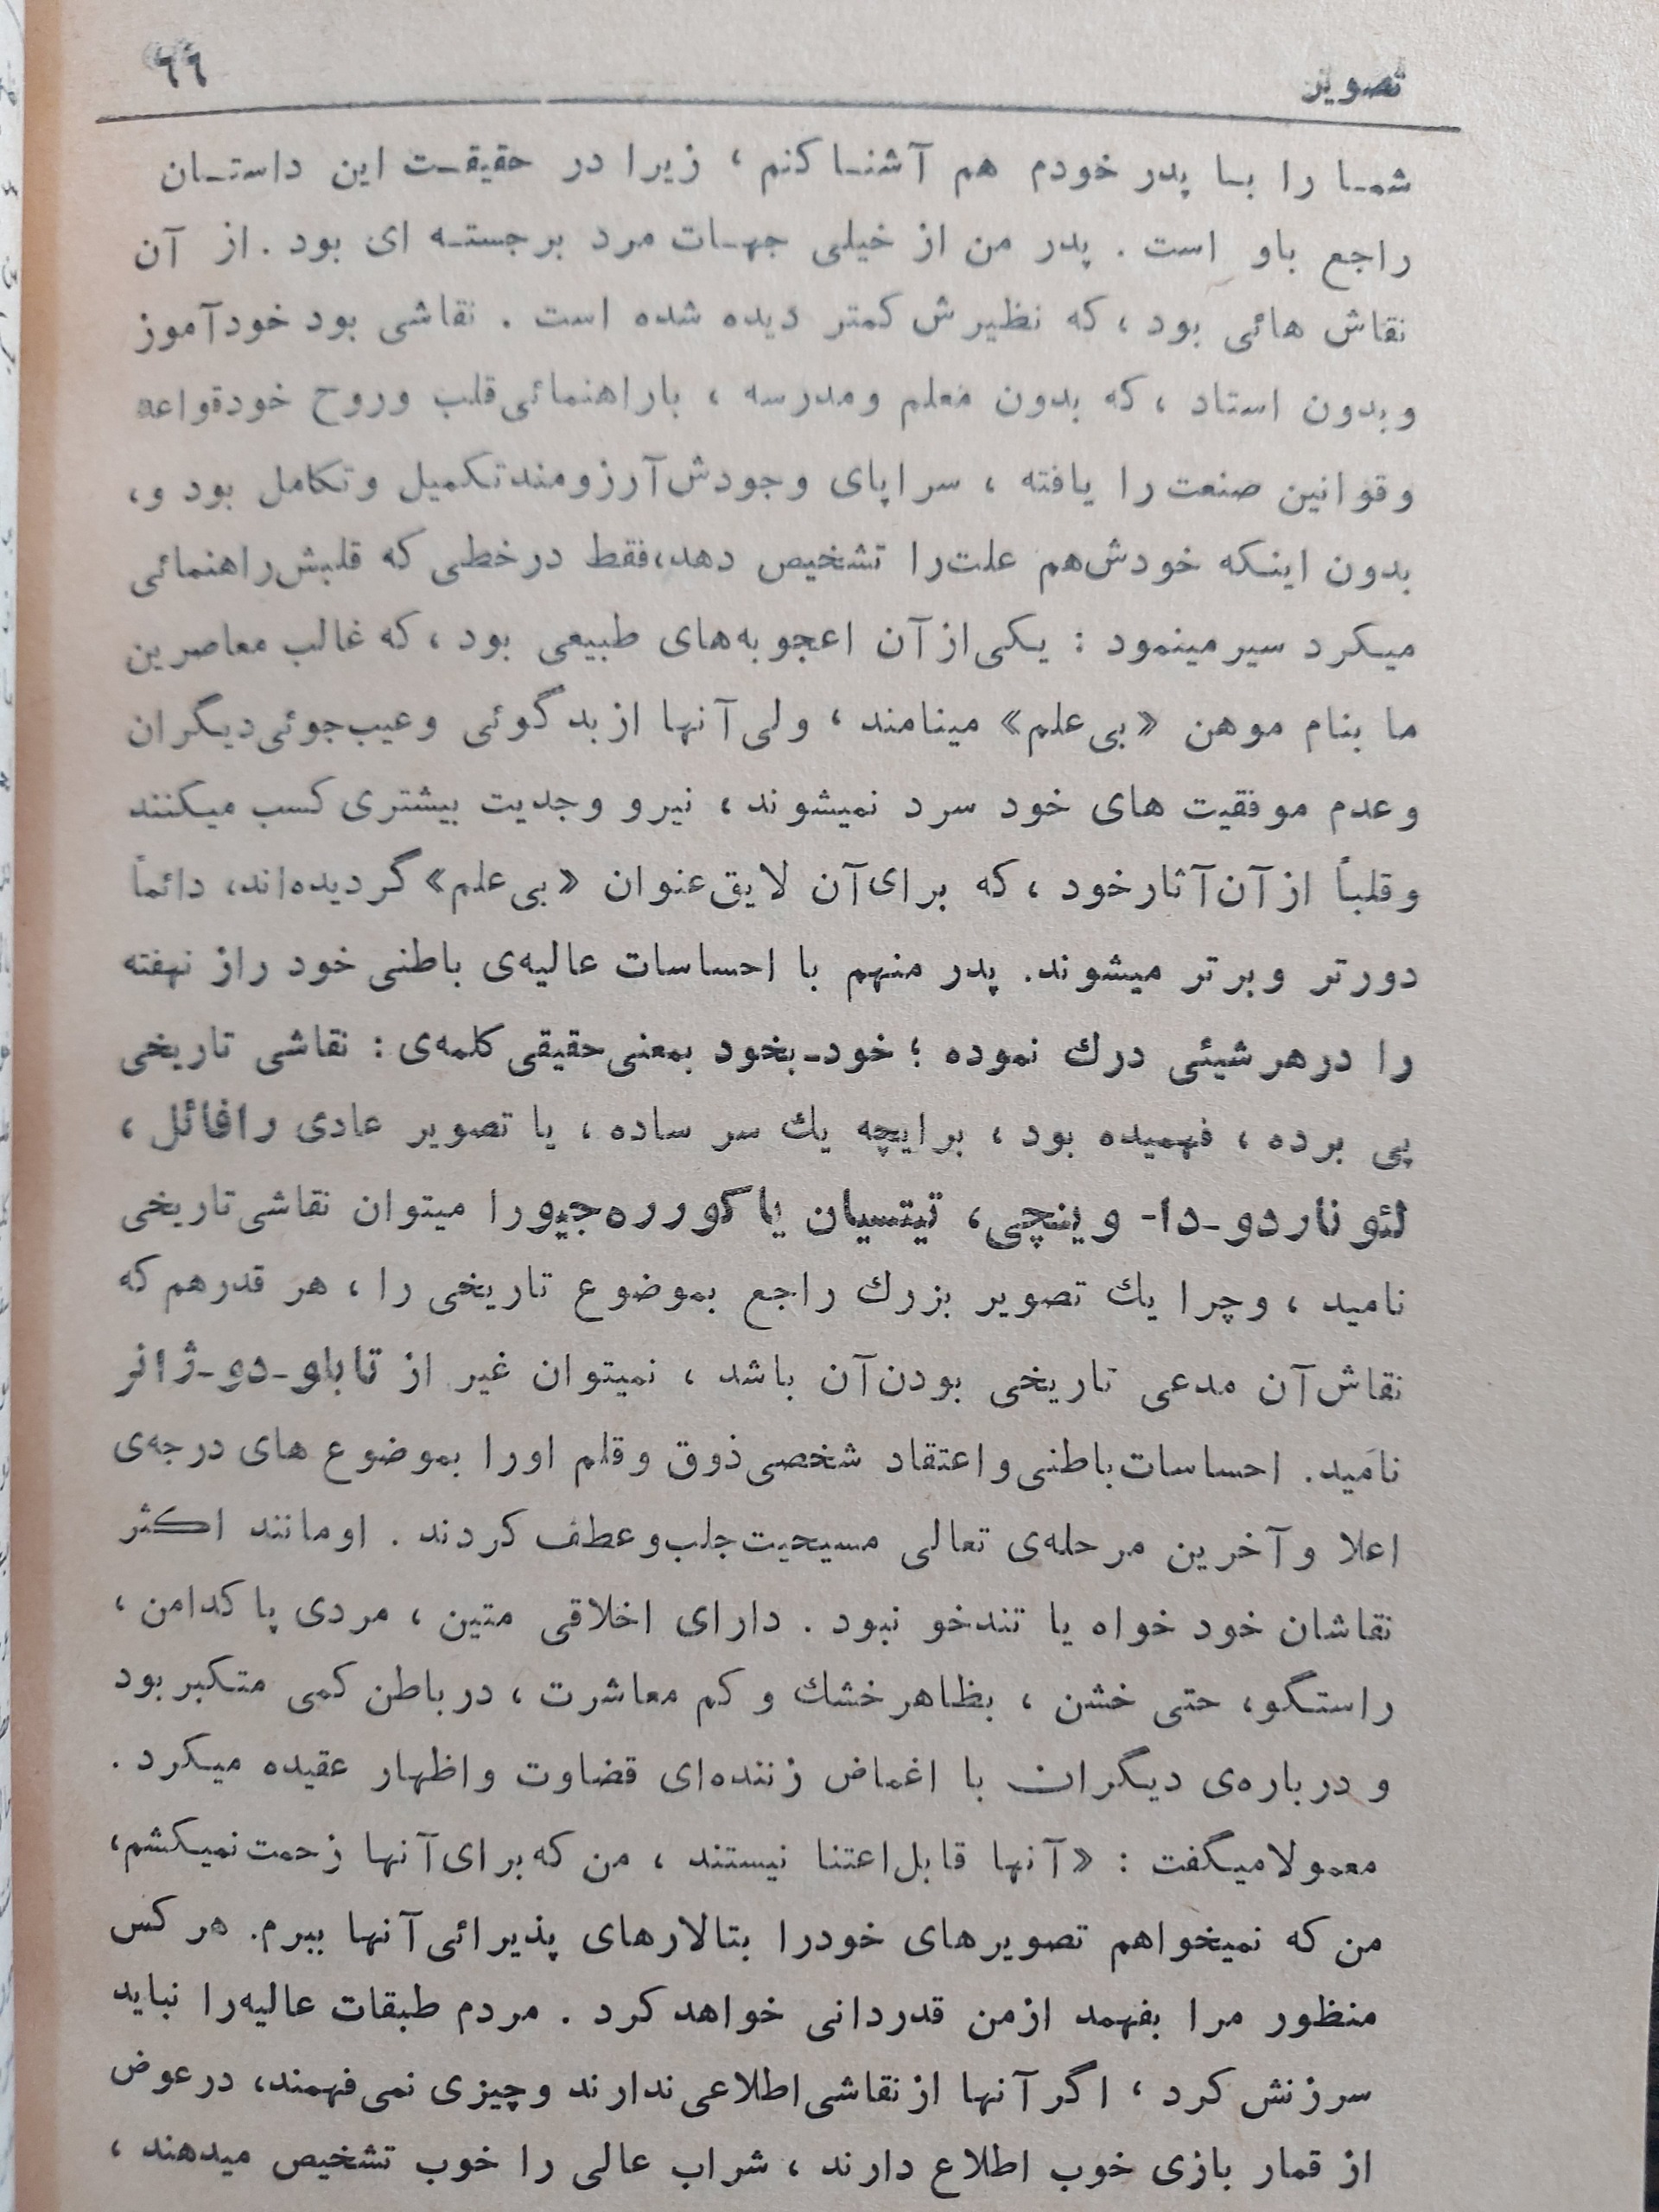 تصویر ٦٦
شما را با پدر خودم هم آشنا کنم ، زیرا در حقیقت این داستان
راجع باو است . پدر من از خیلی جهات مرد برجسته ای بود . از آن
نقاش هائی بود ، که نظیرش کمتر دیده شده است . نقاشی بود خودآموز
وبدون استاد ، که بدون معلم ومدرسه ، باراهنمائی قلب وروح خودقواعد
وقوانین صنعت را یافته ، سراپای وجودش آرزومند تکمیل وتکامل بود و،
بدون اینکه خودش هم علت را تشخیص دهد، فقط درخطی که قلبش راهنمائی
میکرد سیر مینمود : یکی از آن اعجوبه های طبیعی بود ، که غالب معاصرین
ما بنام موهن «بی علم» مینامند ، ولی آنها از بدگوئی وعیب جوئی دیگران
وعدم موفقیت های خود سرد نمیشوند ، نیرو وجدیت بیشتری کسب میکنند
وقلباً از آن آثار خود ، که برای آن لایق عنوان «بی علم» گردیده اند، دائماً
دورتر وبرتر میشوند. پدر منهم با احساسات عالیه‌ی باطنی خود راز نهفته
را درهر شیئی درك نموده ؛ خود-بخود بمعنی حقیقی کلمه‌ی : نقاشی تاریخی
پی برده ، فهمیده بود ، برایچه یك سر ساده ، یا تصویر عادی رافائل ،
لئوناردو-دا- وینچی، تیتسیان یا کوررەجیورا میتوان نقاشی تاریخی
نامید ، وچرا یك تصویر بزرك راجع بموضوع تاریخی را ، هر قدرهم که
نقاش آن مدعی تاریخی بودن آن باشد ، نمیتوان غیر از تابلو-دو-ژانر
نامید. احساسات باطنی واعتقاد شخصی ذوق وقلم اورا بموضوع های درجه‌ی
اعلا وآخرین مرحله‌ی تعالی مسیحیت جلب وعطف کردند . اومانند اکثر
نقاشان خود خواه یا تندخو نبود . دارای اخلاقی متین ، مردی پاکدامن ،
راستگو، حتی خشن ، بظاهر خشك و کم معاشرت ، درباطن کمی متکبر بود
و درباره‌ی دیگران با اغماض زننده ای قضاوت واظهار عقیده میکرد .
معمولا میگفت : «آنها قابل اعتنا نیستند ، من که برای آنها زحمت نمیکشم،
من که نمیخواهم تصویرهای خودرا بتالارهای پذیرائی آنها ببرم. هر کس
منظور مرا بفهمد ازمن قدردانی خواهد کرد . مردم طبقات عالیه را نباید
سرزنش کرد ، اگر آنها از نقاشی اطلاعی ندارند وچیزی نمی فهمند، درعوض
از قمار بازی خوب اطلاع دارند ، شراب عالی را خوب تشخیص میدهند ،